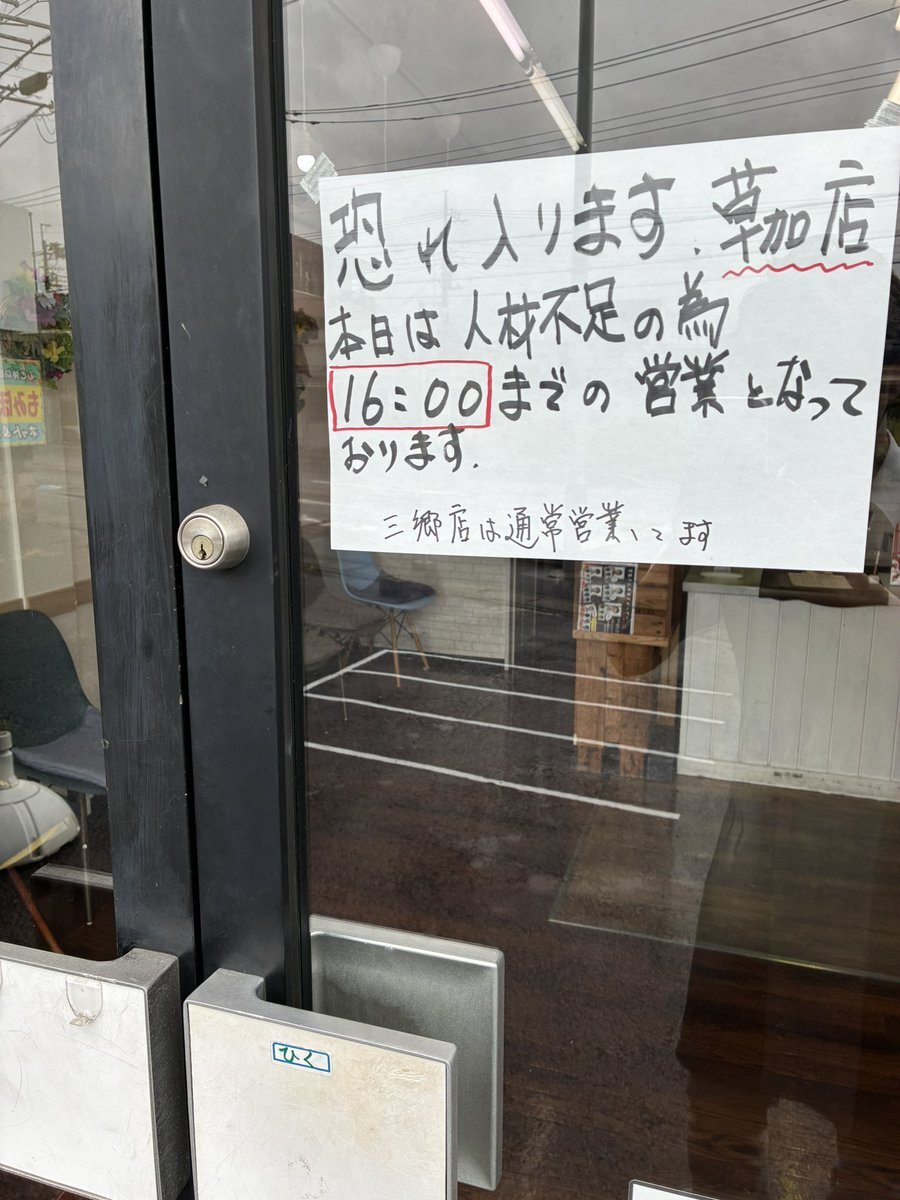 恐れ入ります.草加店
本日は人材不足の為
16:00までの営業となって
おります.
三郷店は通常営業いてます
ひく